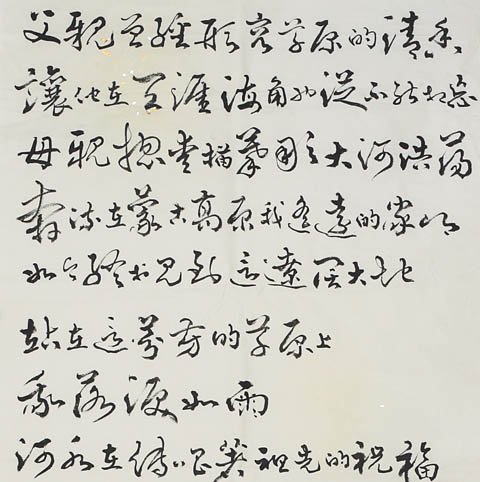 父親曾經形容草原的清香
讓他在天涯海角也從不能相忘
母親總愛描摹那大河浩蕩
奔流在蒙古高原我遙遠的家鄉
如今終於見到這遼闊大地
站在這芬芳的草原上
我落淚如雨
河水在傳唱著祖先的祝福